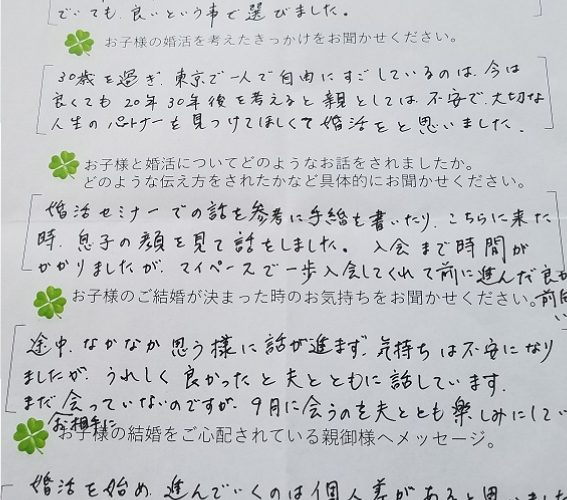 でいても、良いという事で選びました。
お子様の婚活を考えたきっかけをお聞かせください。
30歳を過ぎ、東京で一人で自由にすごしているのは、今は
良くても20年30年後を考えると親としては、不安で、大切な
人生のパートナーを見つけてほしくて婚活をと思いました。
お子様と婚活についてどのようなお話をされましたか。
どのような伝え方をされたかなど具体的にお聞かせください。
婚活セミナーでの話を参考に手紙を書いたり、こちらに来た
時、息子の顔を見て話をしました。入会まで時間が
かかりましたが、マイペースで一歩入会してくれて前に進んだ良かった
お子様のご結婚が決まった時のお気持ちをお聞かせください。
途中、なかなか思う様に話が進まず、気持ちは不安になり
ましたが、うれしく良かったと夫とともに話しています。
まだ会っていないのですが、9月に会うのを夫ととも楽しみにしてい
お相手に
お子様の結婚をご心配されている親御様へメッセージ。
婚活を始め、進んでいくのは個人差があると思いました